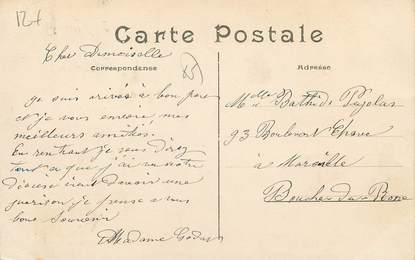 Carte Postale
Correspondance
Adresse
Cher Demoiselle
je suis arivée à bon port
et je vous envoie mes
meilleurs amitiés.
En rentrant je vous direz
tout ce que j'ai
une
guerison je pense a vous
bons souvenir
Madame Godar
Melle Bathide Pujolas
93 Boulevard
à Marseille
Bouches du Rone